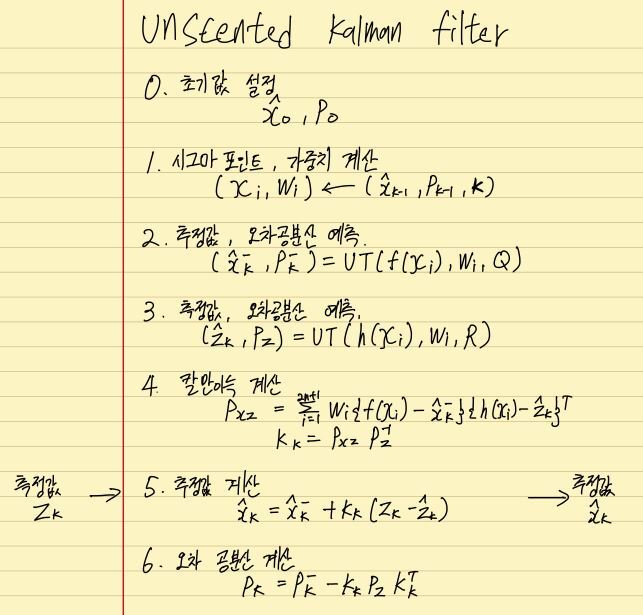 Unscented Kalman filter
0. 초기값 설정
x̂₀, P₀
1. 시그마 포인트, 가중치 계산
(xᵢ, Wᵢ) ← (x̂ₖ₋₁, Pₖ₋₁, K)
2. 추정값, 오차공분산 예측.
(x̂ₖ⁻, Pₖ⁻) = UT(f(xᵢ), Wᵢ, Q)
3. 측정값, 오차공분산 예측.
(ẑₖ, P_z) = UT(h(xᵢ), Wᵢ, R)
4. 칼만이득 계산
P_xz = Σ_{i=1}^{2n+1} Wᵢ{f(xᵢ) - x̂ₖ⁻}{h(xᵢ) - ẑₖ}ᵀ
Kₖ = P_xz P_z⁻¹
측정값
zₖ
→ 5. 추정값 계산
x̂ₖ = x̂ₖ⁻ + Kₖ(zₖ - ẑₖ)
→ 추정값
x̂ₖ
6. 오차 공분산 계산
Pₖ = Pₖ⁻ - Kₖ P_z Kₖᵀ